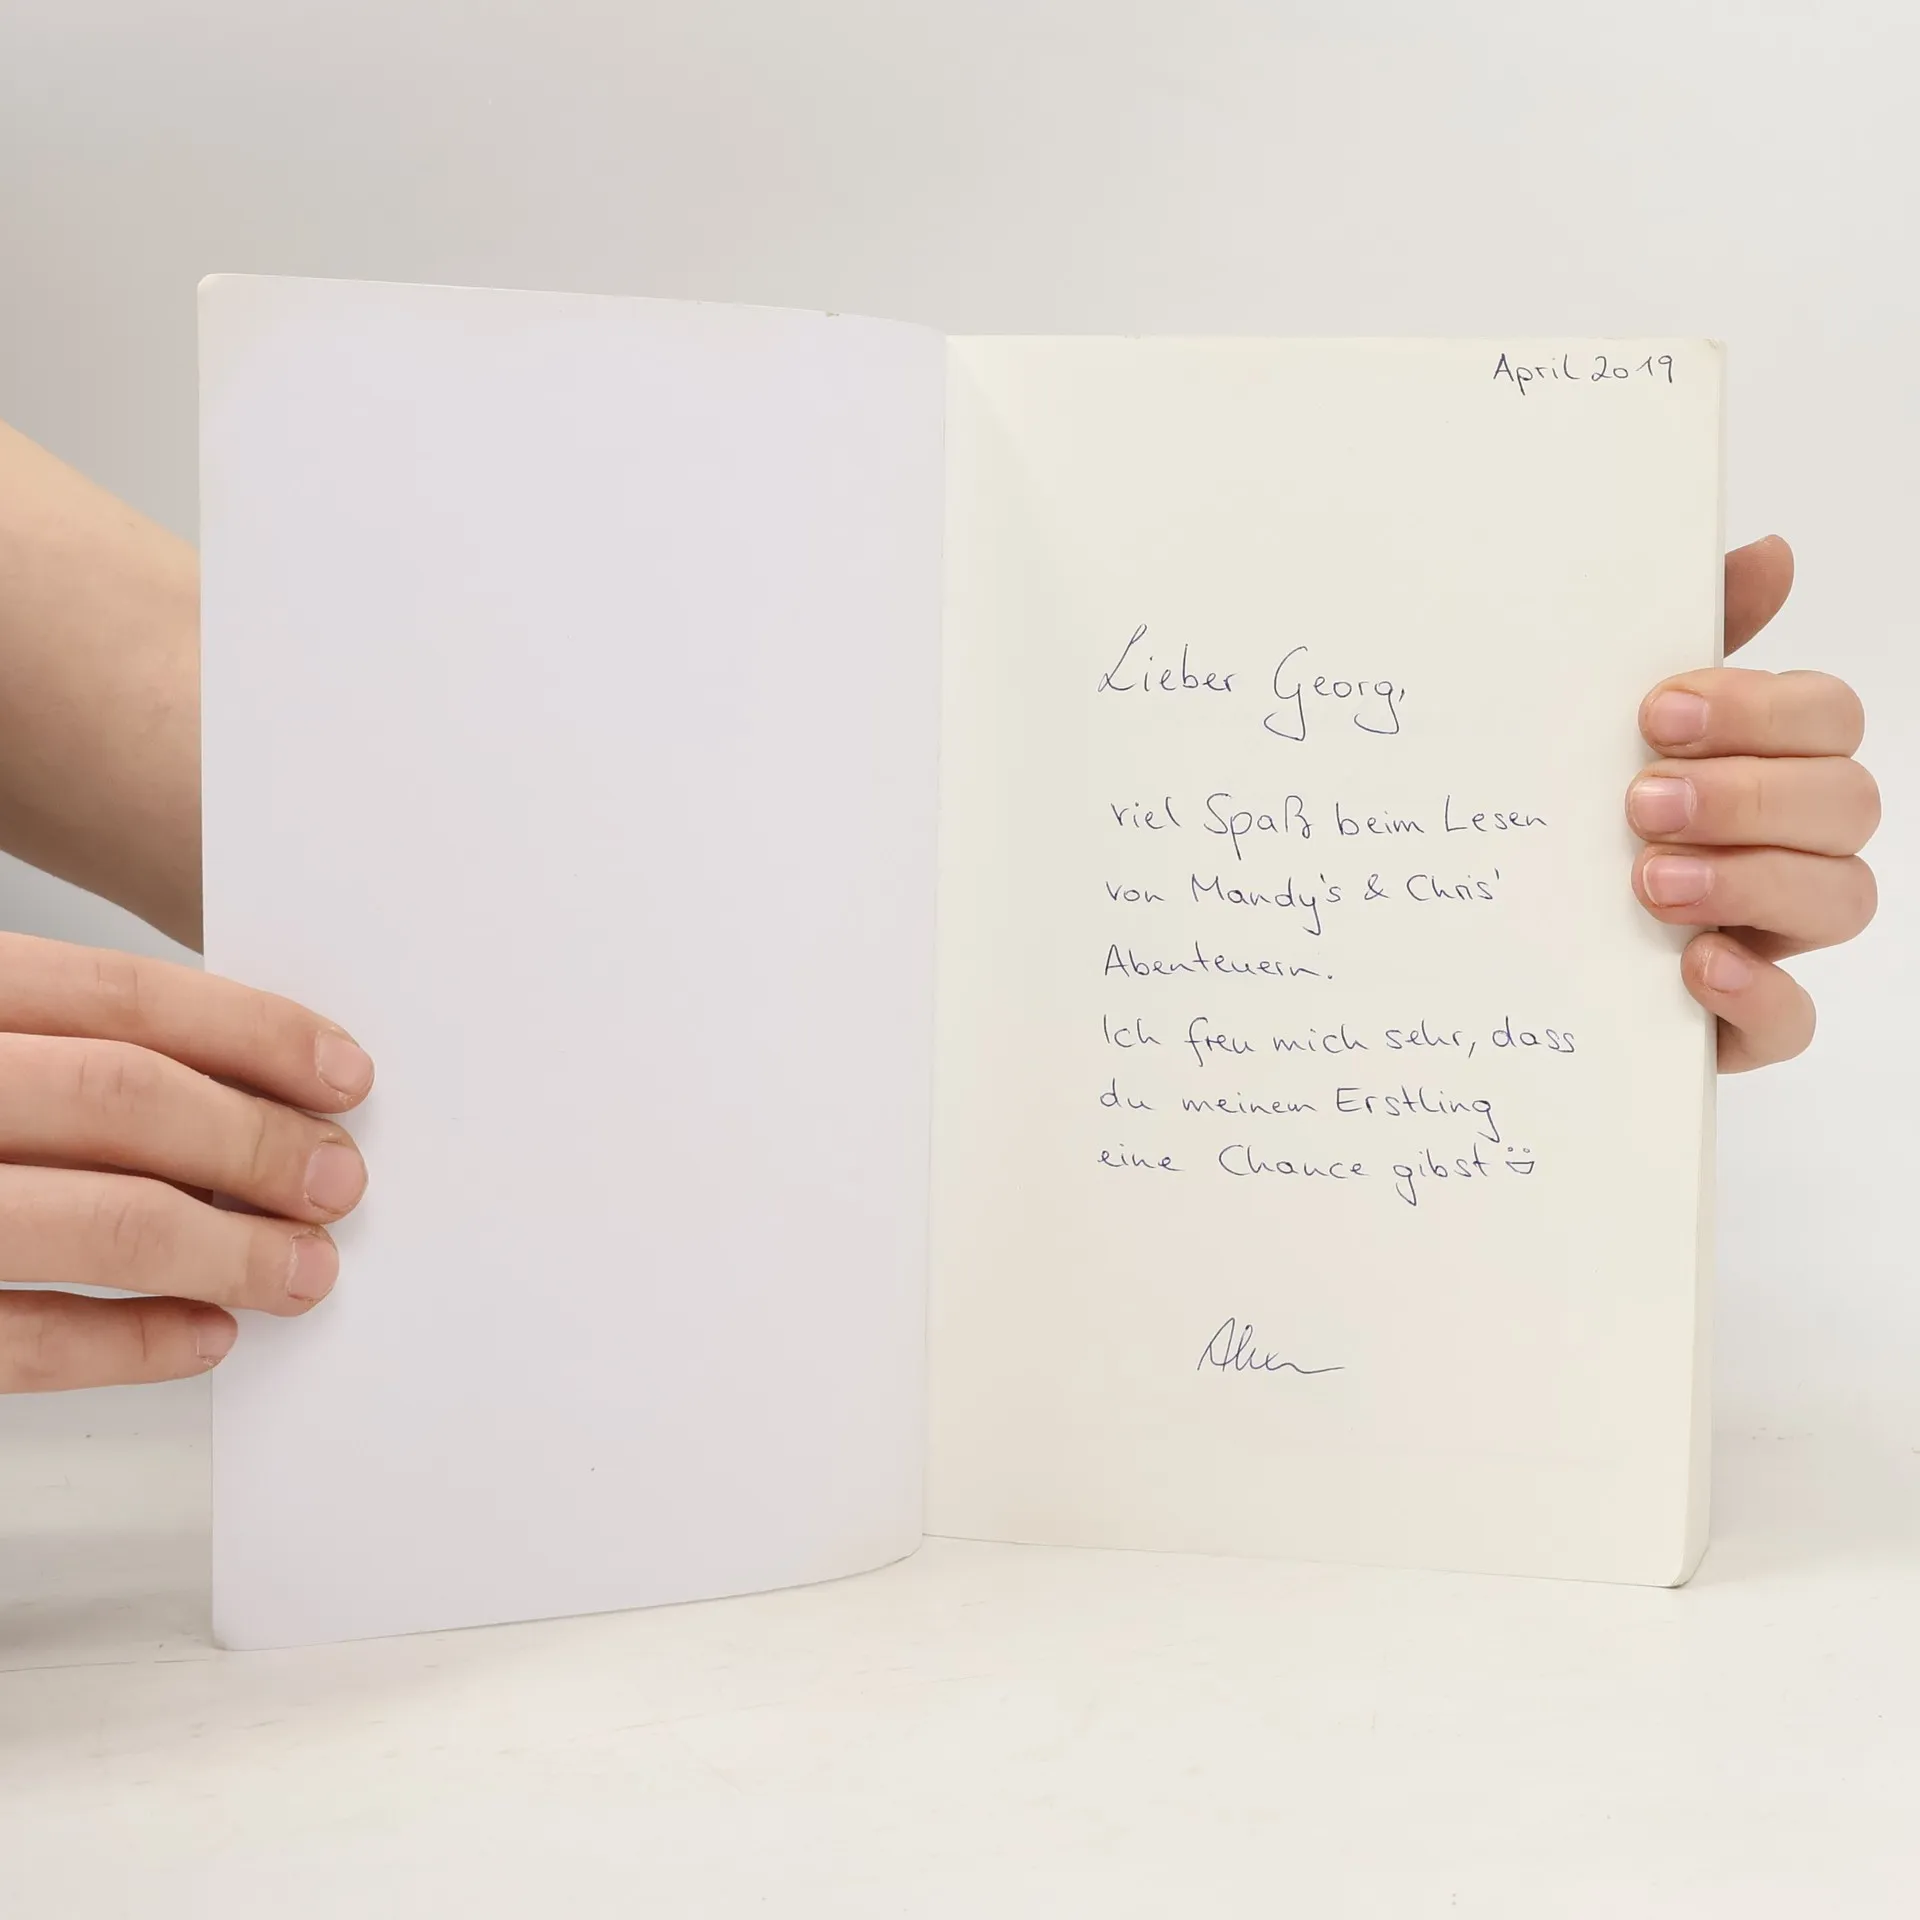 April 2019
Lieber Georg,
viel Spaß beim Lesen
von Mandy's & Chris'
Abenteuern.
Ich freu mich sehr, dass
du meinem Erstling
eine Chance gibst